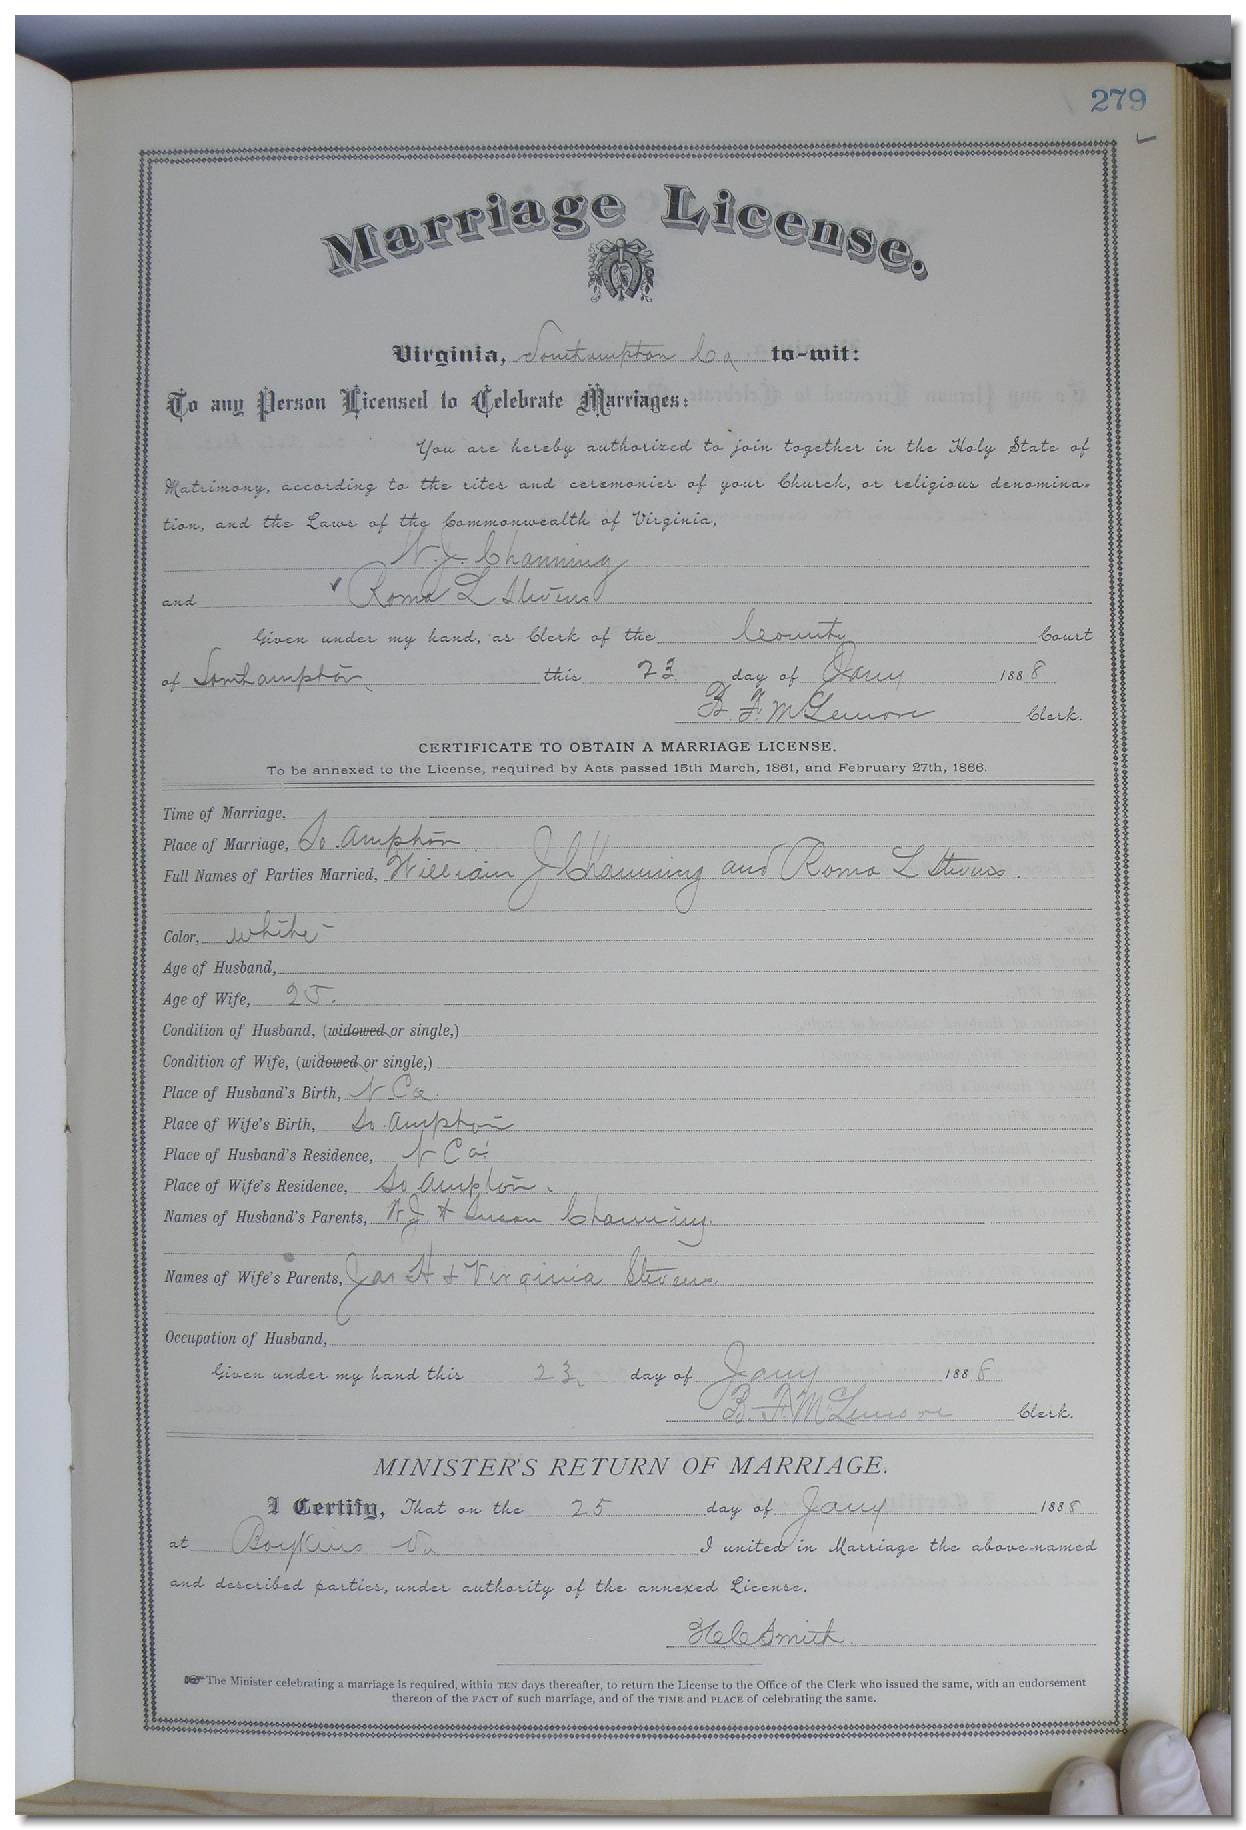 279
Marriage License.
Virginia, Southampton Co to-wit:
To any Person Licensed to Celebrate Marriages:
You are hereby authorized to join together in the Holy State of
Matrimony, according to the rites and ceremonies of your Church, or religious denomina-
tion, and the Laws of the Commonwealth of Virginia,
W. J. Channing
and Roma L Stevens
Given under my hand, as Clerk of the County Court
of Southampton this 23 day of Jany 1888
B. F. McLemore Clerk.
CERTIFICATE TO OBTAIN A MARRIAGE LICENSE.
To be annexed to the License, required by Acts passed 15th March, 1861, and February 27th, 1866.
Time of Marriage,
Place of Marriage, So.ampton
Full Names of Parties Married, William J Channing and Roma L Stevens.
Color, white
Age of Husband,
Age of Wife, 25.
Condition of Husband, (widowed or single,)
Condition of Wife, (widowed or single,)
Place of Husband's Birth, N Ca.
Place of Wife's Birth, So.ampton
Place of Husband's Residence, N Ca.
Place of Wife's Residence, So ampton.
Names of Husband's Parents, W J & Susan Channing.
Names of Wife's Parents, Jas H & Virginia Stevens
Occupation of Husband,
Given under my hand this 23 day of Jany 1888
B. F. McLemore Clerk.
MINISTER'S RETURN OF MARRIAGE.
I Certify, That on the 25 day of Jany 1888
at Boykins Va I united in Marriage the above-named
and described parties, under authority of the annexed License.
H C Smith.
The Minister celebrating a marriage is required, within TEN days thereafter, to return the License to the Office of the Clerk who issued the same, with an endorsement
thereof of the FACT of such marriage, and of the TIME and PLACE of celebrating the same.